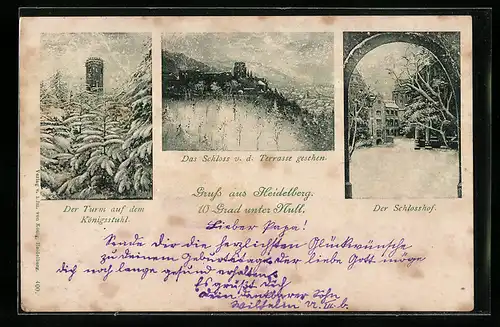 Das Schloss v. d. Terrasse gesehen.
Der Turm auf dem
Königsstuhl.
Gruß aus Heidelberg.
10 Grad unter Null.
Der Schlosshof.
Lieber Papa!
Sende dir die herzlichsten Glückwünsche
zu deinem Geburtstage der liebe Gott möge
dich noch lange gesund erhalten
Es grüßt dich
dein dankbarer Sohn
Wilhelm
Verlag v. Edm. von König, Heidelberg.